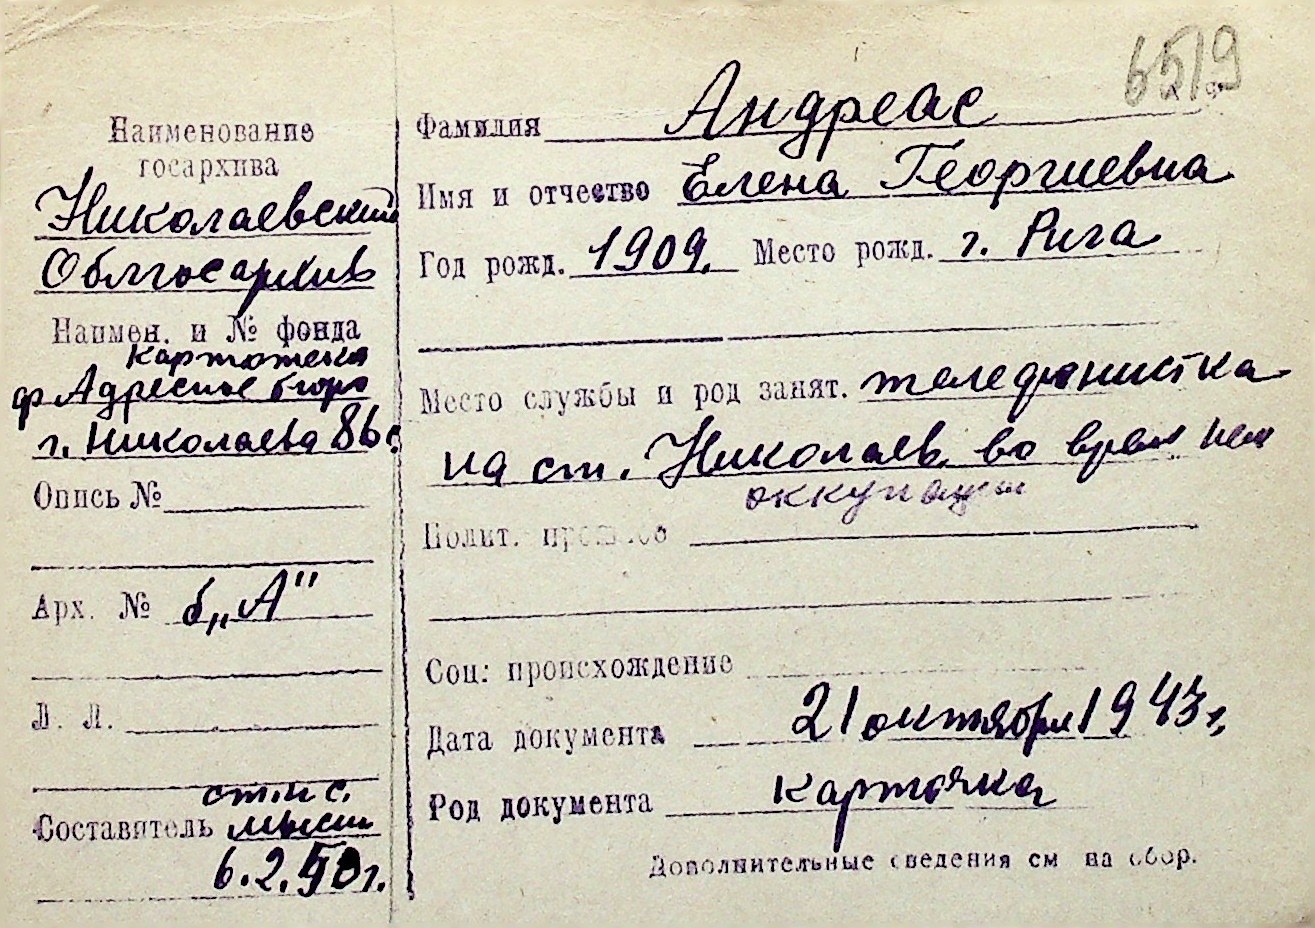 6519
Наименование
госархива
Николаевский
Облгосархив
Наимен. и № фонда
картотека
ф Адресное бюро
г. Николаева 86с.
Опись №
Арх. № б„А"
Л. Л.
ст. н с.
Составитель
6.2.50г.
Фамилия Андреас
Имя и отчество Елена Георгиевна
Год рожд. 1909. Место рожд. г. Рига
Место службы и род занят. телефонистка
на ст. Николаев во врем нем
оккупации
Полит. прошлое
Соц: происхождение
Дата документа 21 октября 1943г,
Род документа карточка
Дополнительные сведения см на обор.